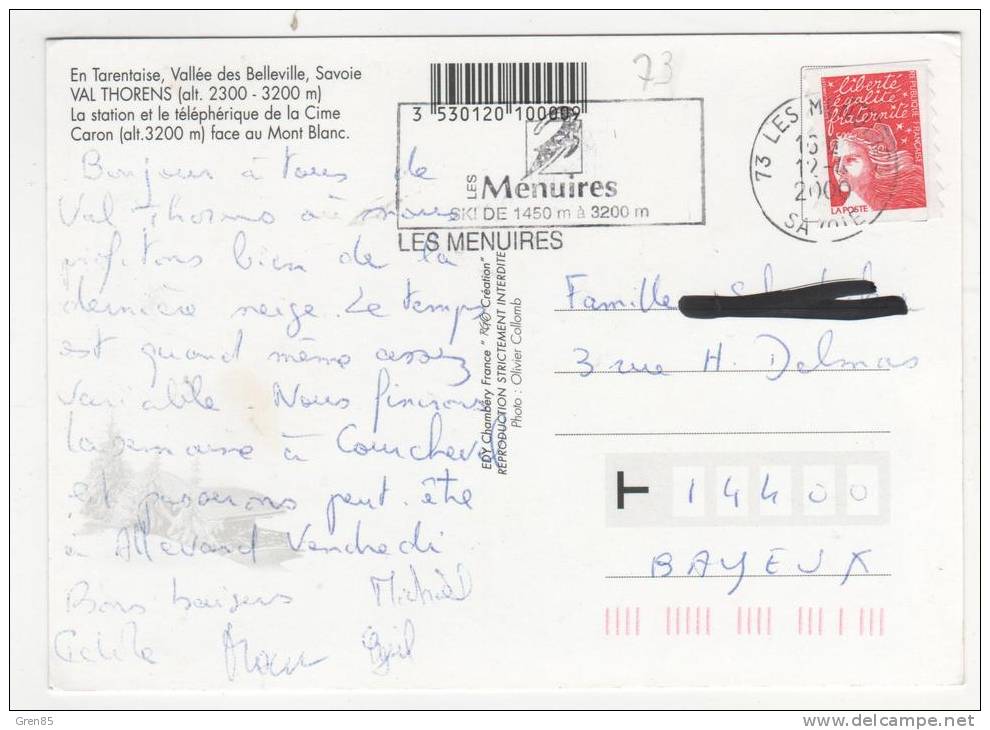 En Tarentaise, Vallée des Belleville, Savoie
VAL THORENS (alt. 2300 - 3200 m)
La station et le téléphérique de la Cime
Caron (alt.3200 m) face au Mont Blanc.
3 530120 100009
73
LES Menuires
SKI DE 1450 m à 3200 m
LES MENUIRES
73 LES M
12-4
SAVOIE
liberté
égalité
fraternité
REPUBLIQUE FRANÇAISE
LA POSTE
Bonjour à tous de
Val Thorens où nous
profitons bien de la
dernière neige. Le temps
est quand même assez
variable. Nous finirons
la semaine à Courchevel
et passerons peut-être
à Allevard Vendredi
Bons baisers
EDY Chambéry France " Création"
REPRODUCTION STRICTEMENT INTERDITE
Photo : Olivier Collomb
Famille
3 rue H. Delmas
T 14400
BAYEUX
Gren85
www.delcampe.net